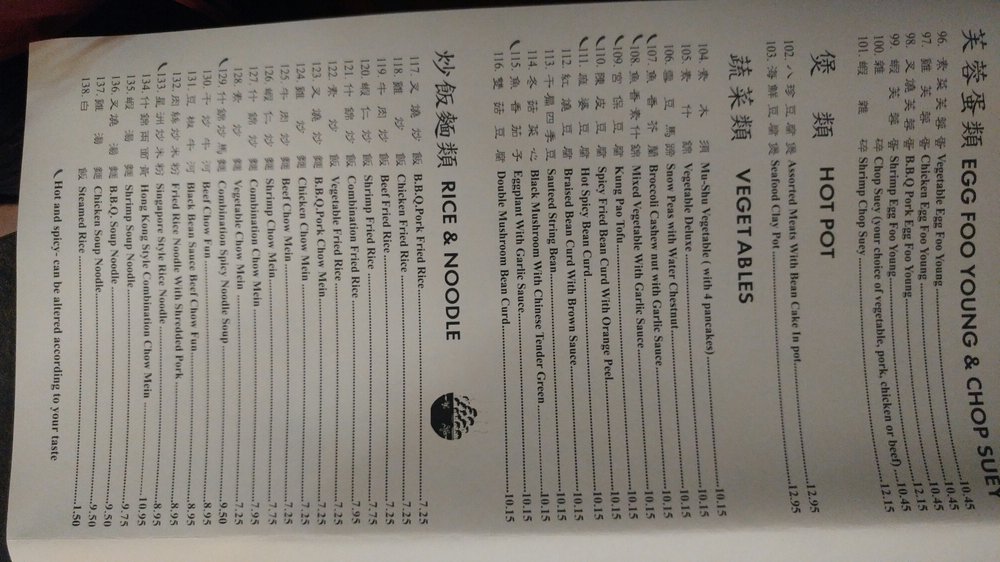 芙蓉蛋類 EGG FOO YOUNG & CHOP SUEY
96. 素菜芙蓉蛋 Vegetable Egg Foo Young 10.45
97. 雞芙蓉蛋 Chicken Egg Foo Young 10.45
98. 叉燒芙蓉蛋 B.B.Q Pork Egg Foo Young 10.45
99. 蝦芙蓉蛋 Shrimp Egg Foo Young 12.15
100. 雜碎 Chop Suey (your choice of vegetable, pork, chicken or beef) 10.45
101. 蝦雜碎 Shrimp Chop Suey 12.15
煲類 HOT POT
102. 八珍豆腐煲 Assorted Meats With Bean Cake In pot 12.95
103. 海鮮豆腐煲 Seafood Clay Pot 12.95
蔬菜類 VEGETABLES
104. 素木須 Mu-Shu Vegetable ( with 4 pancakes) 10.15
105. 素什錦 Vegetable Deluxe 10.15
106. 雪豆馬蹄 Snow Peas with Water Chestnut 10.15
107. 魚香芥蘭 Broccoli Cashew nut with Garlic Sauce 10.15
108. 魚香素什錦 Mixed Vegetable With Garlic Sauce 10.15
109. 宮保豆腐 Kung Pao Tofu 10.15
110. 陳皮豆腐 Spicy Fried Bean Curd With Orange Peel 10.15
111. 麻婆豆腐 Hot Spicy Bean Curd 10.15
112. 紅燒豆腐 Braised Bean Curd With Brown Sauce 10.15
113. 干扁四季豆 Sauteed String Bean 10.15
114. 冬菇菜心 Black Mushroom With Chinese Tender Green 10.15
115. 魚香茄子 Eggplant With Garlic Sauce 10.15
116. 雙菇豆腐 Double Mushroom Bean Curd 10.15
炒飯麵類 RICE & NOODLE
117. 叉燒炒飯 B.B.Q.Pork Fried Rice 7.25
118. 雞炒飯 Chicken Fried Rice 7.25
119. 牛肉炒飯 Beef Fried Rice 7.25
120. 蝦仁炒飯 Shrimp Fried Rice 7.75
121. 什錦炒飯 Combination Fried Rice 7.95
122. 素炒飯 Vegetable Fried Rice 7.25
123. 叉燒炒麵 B.B.Q.Pork Chow Mein 7.25
124. 雞炒麵 Chicken Chow Mein 7.25
125. 牛肉炒麵 Beef Chow Mein 7.25
126. 蝦仁炒麵 Shrimp Chow Mein 7.75
127. 什錦炒麵 Combination Chow Mein 7.95
128. 素炒麵 Vegetable Chow Mein 7.25
129. 什錦炒馬麵 Combination Spicy Noodle Soup 9.50
130. 牛炒河 Beef Chow Fun 8.95
131. 豆椒牛河 Black Bean Sauce Beef Chow Fun 8.95
132. 肉絲炒米粉 Fried Rice Noodle With Shredded Pork 8.95
133. 星洲炒米粉 Singapore Style Rice Noodle 8.95
134. 什錦兩面黃 Hong Kong Style Combination Chow Mein 10.95
135. 蝦湯麵 Shrimp Soup Noodle 9.75
136. 叉燒湯麵 B.B.Q. Soup Noodle 9.50
137. 雞湯麵 Chicken Soup Noodle 9.50
138. 白飯 Steamed Rice 1.50
Hot and spicy- can be altered according to your taste